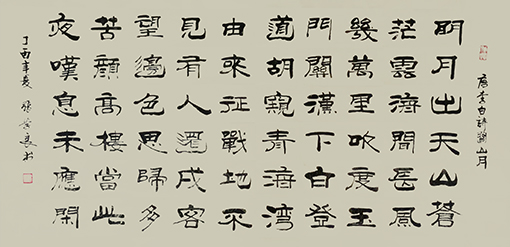 唐李白詩關山月
明月出天山蒼
茫雲海間長風
幾萬里吹度玉
門關漢下白登
道胡窺青海灣
由來征戰地不
見有人還戍客
望邊色思歸多
苦顏高樓當此
夜嘆息未應閑
丁酉年夏